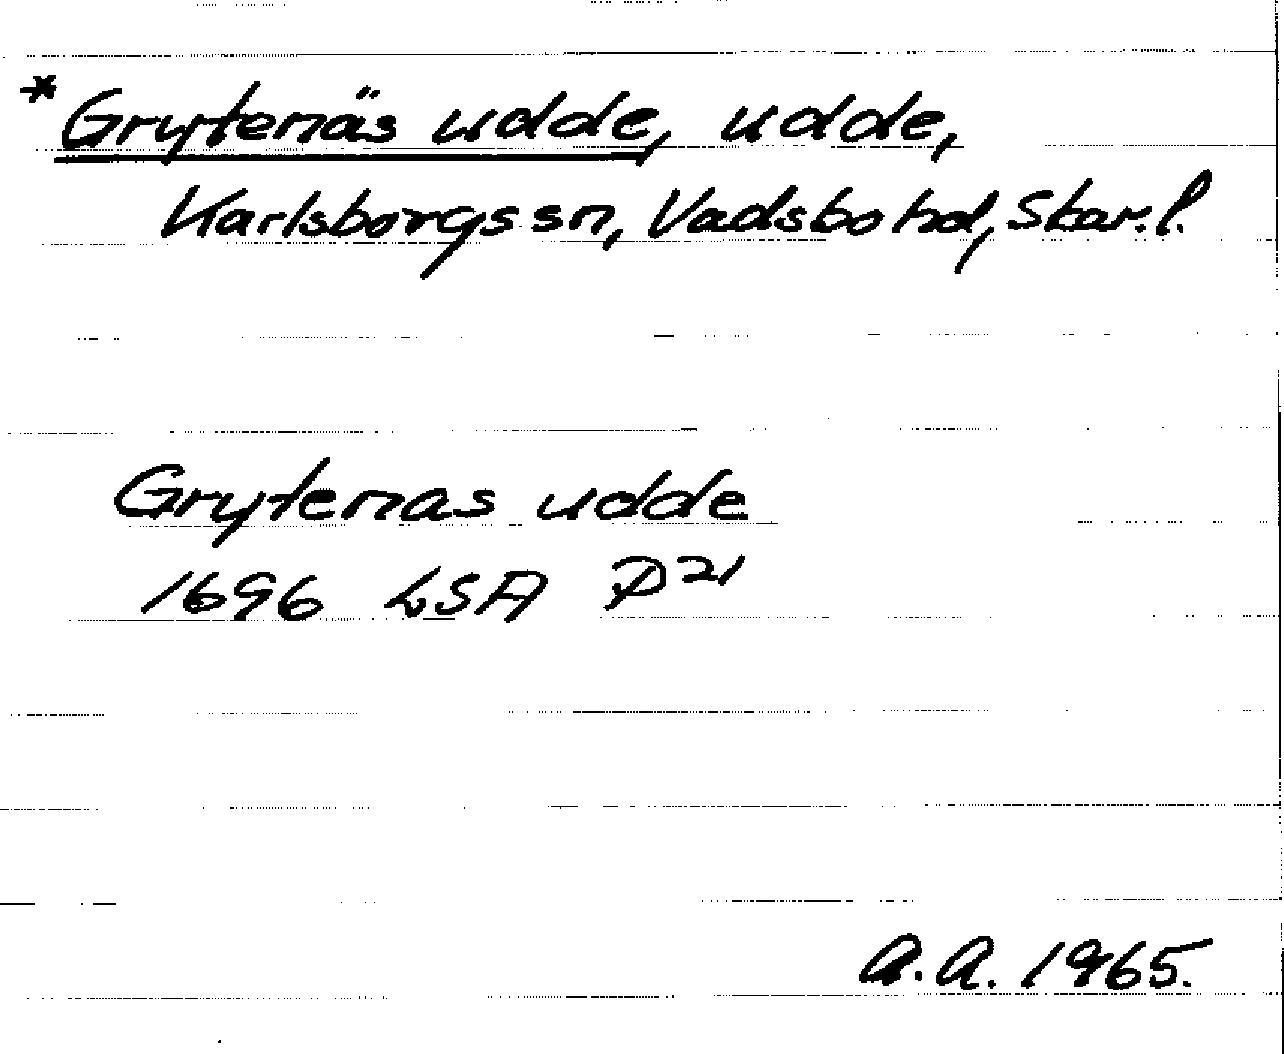 *Grytenäs udde, udde,
Karlsborgs sn, Vadsbo hd, Skar.l.
Grytenas udde
1696 LSA P21
A.A. 1965.